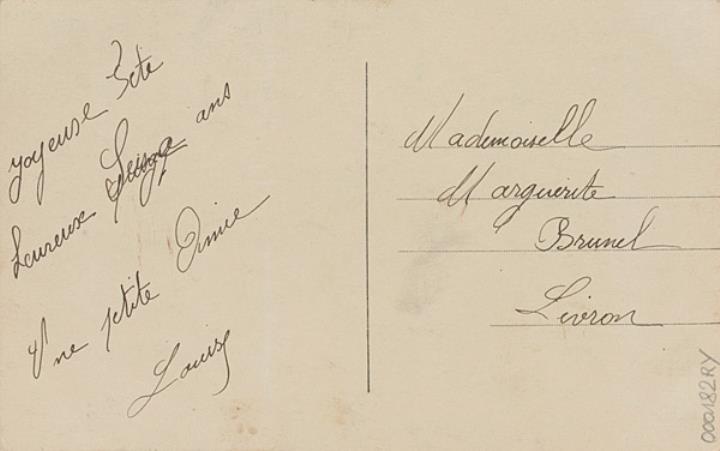 yoyeuse Fête
heureux Seize ans
Une petite Amie
Louise
Mademoiselle
Marguerite
Brunel
Livron
000182RY